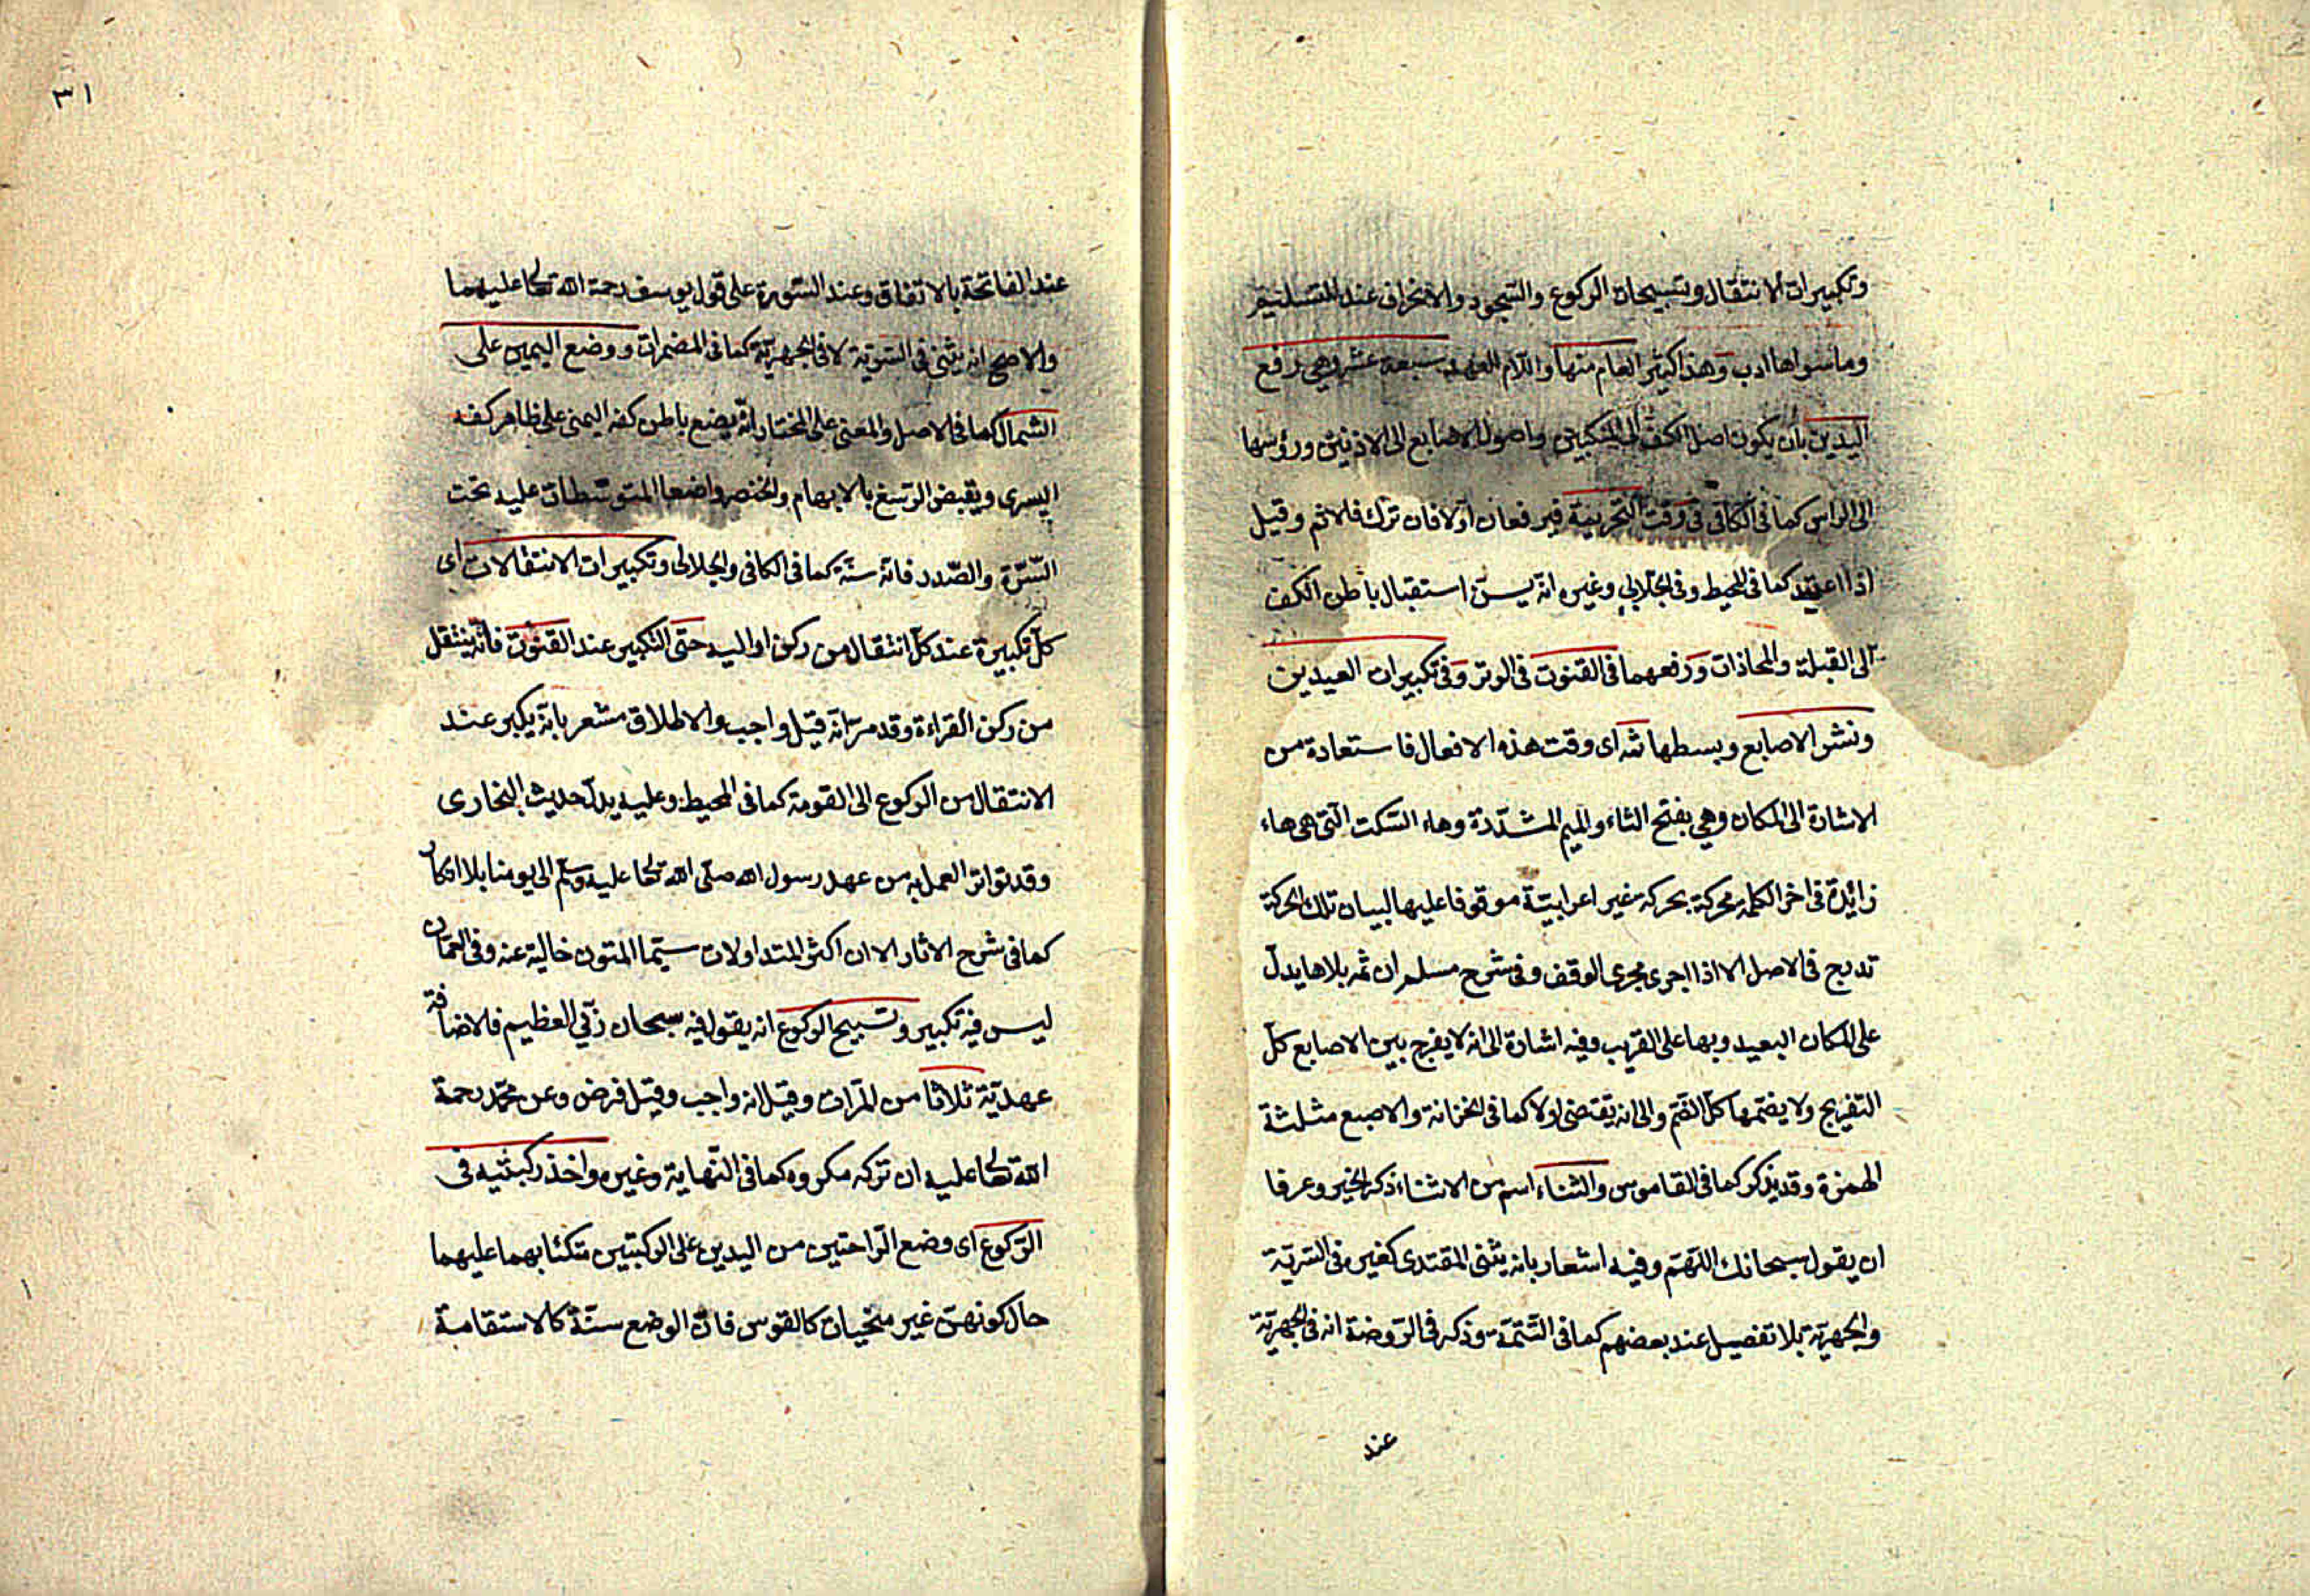 وتكبيرات الانتقال وتسبيحات الركوع والسجود والانحراف عند التسليم
وما سواها ادب وهذا كثير العام منها واللام للعهد سبعة عشر وهي رفع
اليدين بان يكون اصل الكف الى المنكبين واصول الاصابع الى الاذنين ورؤسها
الى الراس كما في الكافي في وقت التحريمة فيرفعان اولا فان ترك فلا اثم وقيل
اذا اعتيد كما في المحيط وفي الجلابي وغيره انه يسن استقبال باطن الكف
الى القبلة والمحاذات ورفعهما في القنوت في الوتر وفي تكبيرات العيدين
ونشر الاصابع وبسطها ثمه اى وقت هذه الافعال فاستعادة من
الاشارة الى المكان وهي بفتح الثاء والميم المشددة وهاء السكت التى هى هاء
زائدة في اخر الكلمة محركة بحركة غير اعرابيّة موقوفا عليها لبيان تلك الحركة
تدرج في الاصل الا اذا اجرى مجرى الوقف وفي شرح مسلم ان ثمه بلا ها يدلّ
على المكان البعيد وبها على القريب وفيه اشارة الى انه لا يفرج بين الاصابع كلّ
التفريج ولا يضمها كلّ الضّم والى انه يقتضى اولا كما في الخزانة والاصبع مثلثة
الهمزة وقد يذكر كما في القاموس والثناء اسم من الاثناء ذكر الخير وعرفا
ان يقول سبحانك اللّهمّ وفيه اشعار بانه يثنى المقتدى كغيره في السّريّة
والجهريّة بلا تفصيل عند بعضهم كما في التّتمّة وذكر في الرّوضة انه في الجهريّة
عند
٣١
عند الفاتحة بالاتفاق وعند السّورة على قول يوسف رحمة الله تعالى عليهما
والاصح انه يثنى في السّريّة لا في الجهريّة كما في المضمرات ووضع اليمين على
الشمال كما في الاصل والمعنى على المختار انّه يضع باطن كفه اليمنى على ظاهر كفه
اليسرى ويقبض الرّسغ بالابهام والخنصر واضعا المتوسّطات عليه تحت
السّرّة والصّدر فانّه سنّة كما في الكافي والجلابى وتكبيرات الانتقالات اى
كلّ تكبيرة عند كلّ انتقال من ركن او اليه حتّى التكبير عند القنوت فانّه ينتقل
من ركن القراءة وقد مرّ انّه قيل واجب والاطلاق مشعر بانّه يكبر عند
الانتقال من الركوع الى القومة كما في المحيط وعليه يدلّ حديث البخارى
وقد تواتر العمل به من عهد رسول الله صلّى الله تعالى عليه وسلّم الى يومنا بلا انكار
كما في شرح الاثار الا ان اكثر المتداولات سيّما المتون خالية عنه وفي العمّان
ليس فيه تكبير وتسبيح الركوع انه يقول فيه سبحان ربّي العظيم فالاضافة
عهديّة ثلاثا من المرّات وقيل انه واجب وقيل فرض وعن محمّد رحمة
الله تعالى عليه ان تركه مكروه كما في النّهاية وغيره واخذ ركبتيه في
الرّكوع اى وضع الرّاحتين من اليدين على الركبتين متكئا بهما عليهما
حال كونهنّ غير منحيات كالقوس فانّ الوضع سنّة كالاستقامة